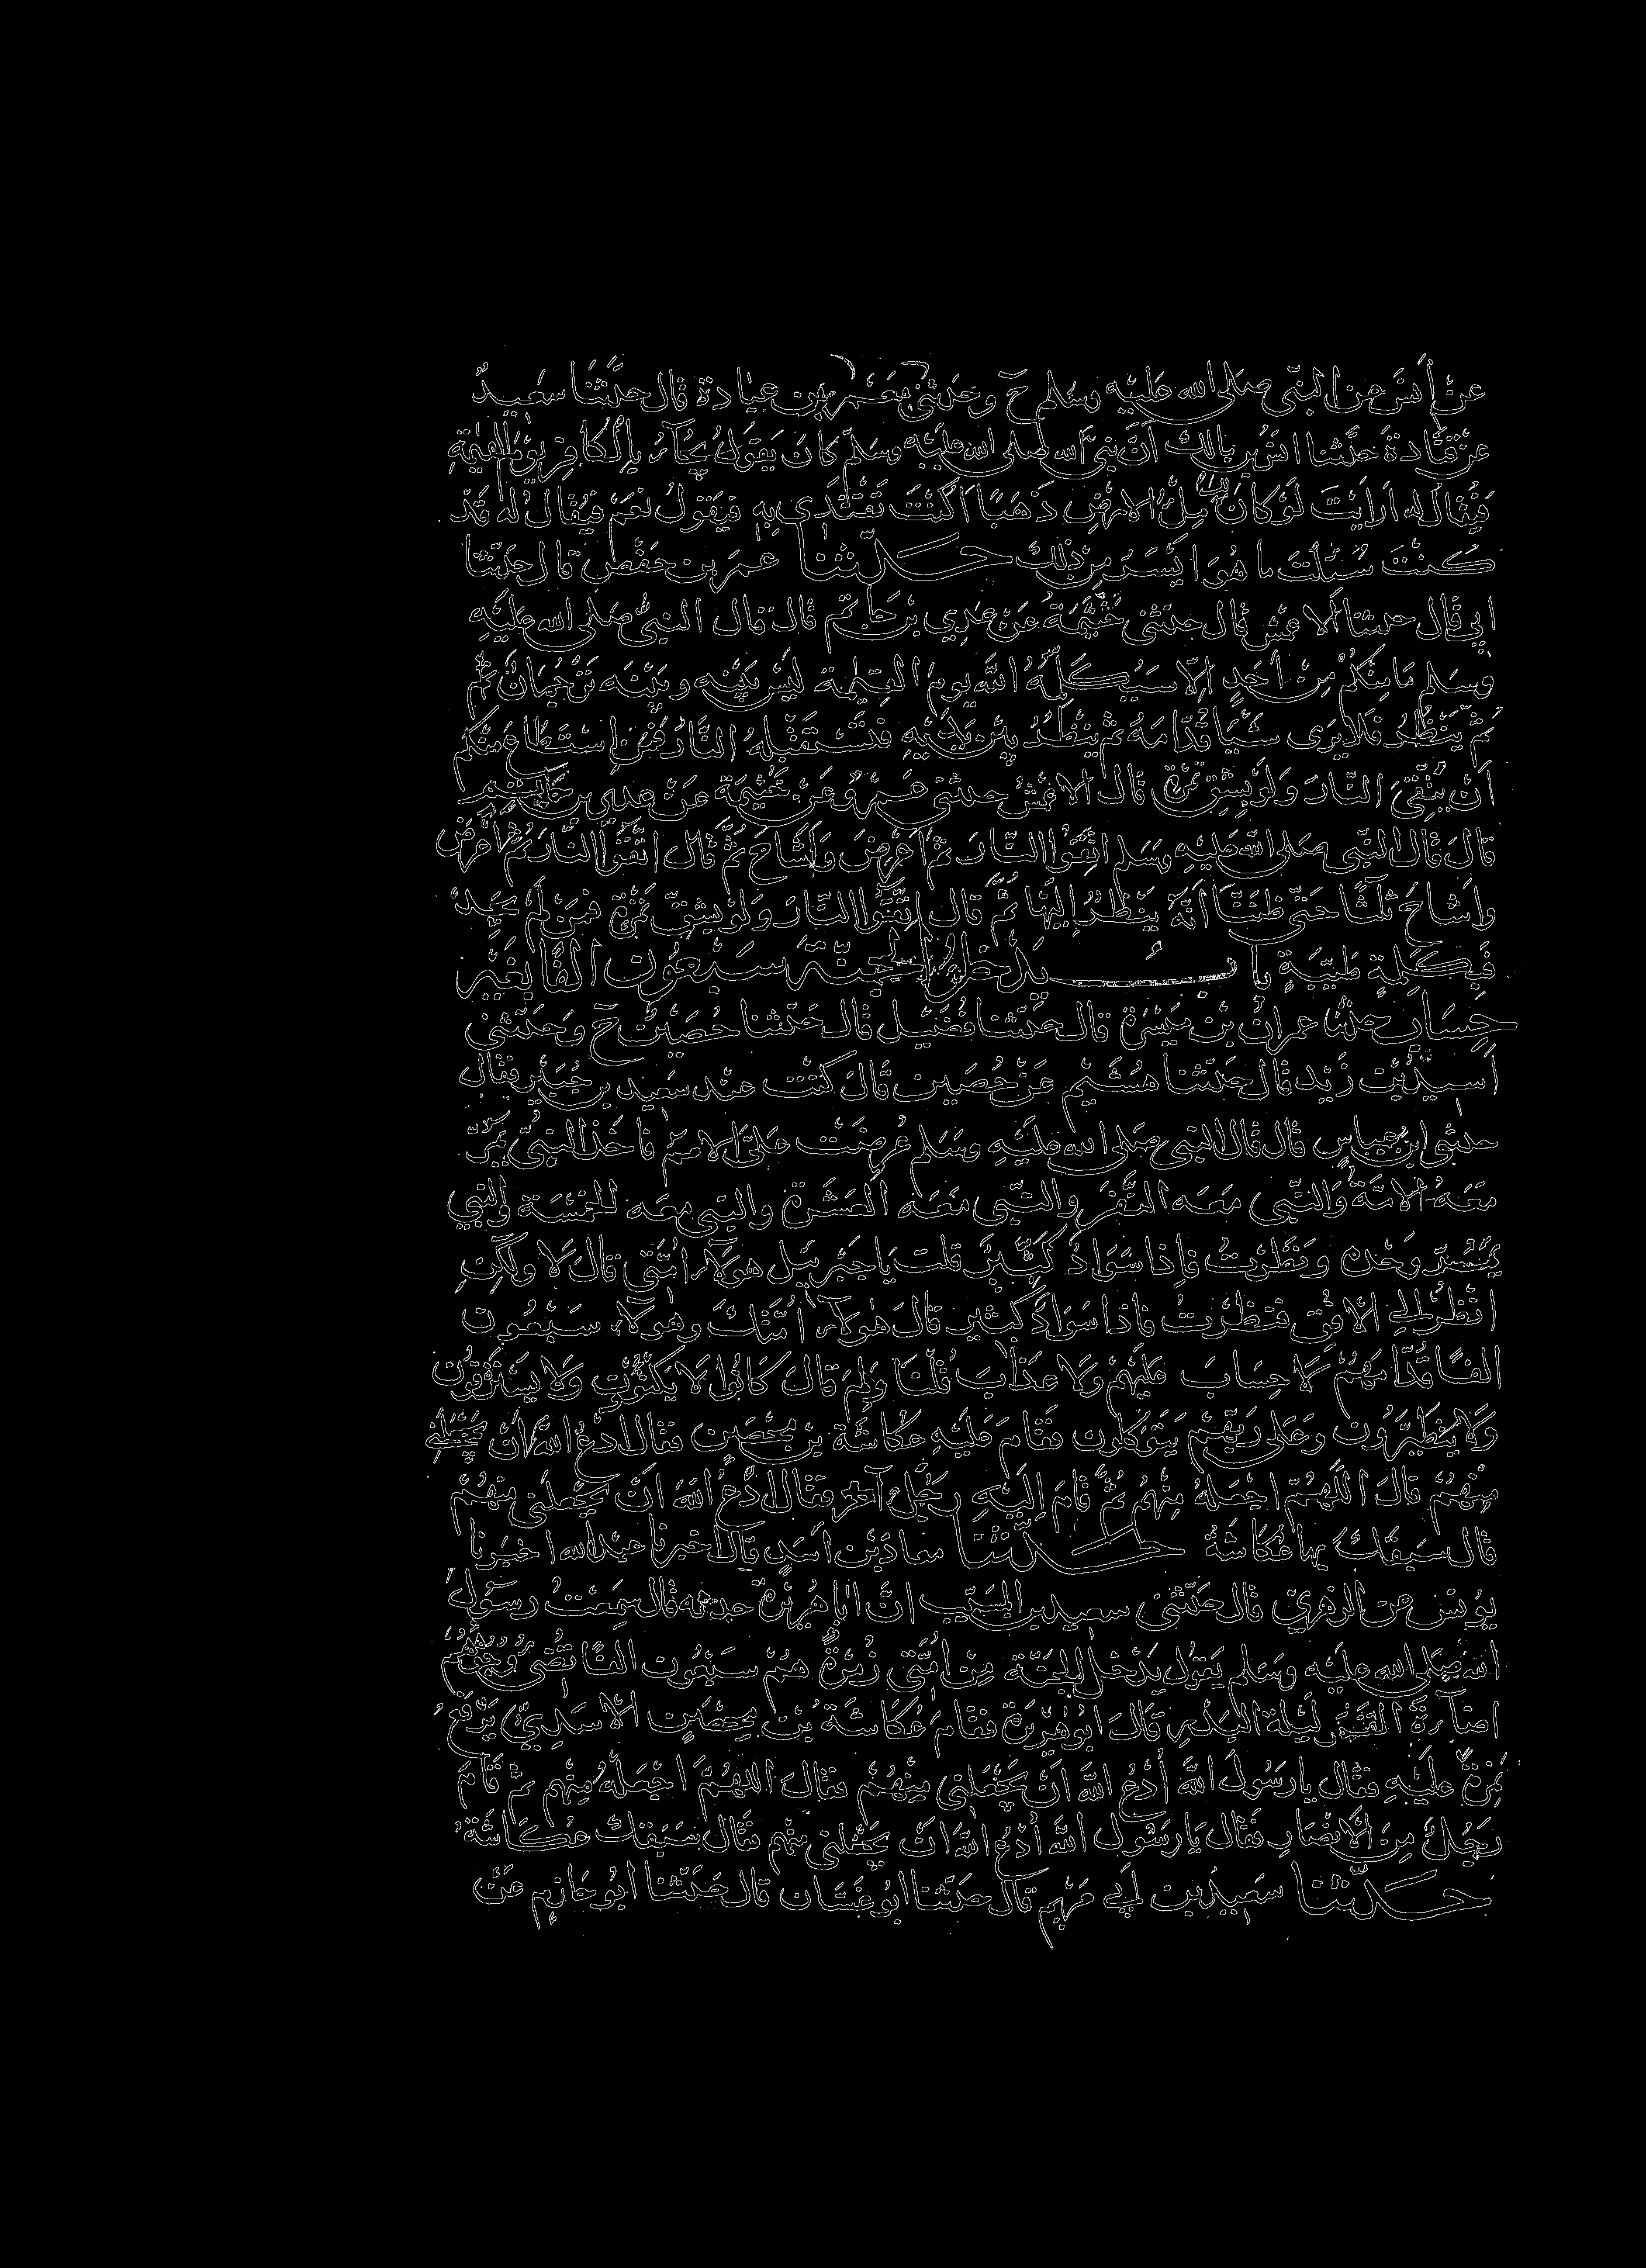 عَنْ أَنَسٍ عَنِ النَّبِيِّ صَلَّى اللهُ عَلَيْهِ وَسَلَّمَ حَ وَحَدَّثَنِي مَعْمَرُ بْنُ عِبَادَةَ قَالَ حَدَّثَنَا سَعِيدٌ
عَنْ قَتَادَةَ حَدَّثَنَا انَسُ بْنُ مَالِكٍ أَنَّ نَبِيَّ اللهِ صَلَّى اللهُ عَلَيْهِ وَسَلَّمَ كَانَ يَقُولُ يُجَاءُ بِالْكَافِرِ يَوْمَ الْقِيٰمَةِ
فَيُقَالُ لَهُ اَرَاَيْتَ لَوْ كَانَ لَكَ مِلْءُ الْاَرْضِ ذَهَبًا اَكُنْتَ تَفْتَدِي بِهِ فَيَقُولُ نَعَمْ فَيُقَالُ لَهُ قَدْ
كُنْتَ سُئِلْتَ مَا هُوَ اَيْسَرُ مِنْ ذٰلِكَ حَدَّثَنَا عُمَرُ بْنُ حَفْصٍ قَالَ حَدَّثَنَا
ابِي قَالَ حَدَّثَنَا الْاَعْمَشُ قَالَ حَدَّثَنِي خَيْثَمَةُ عَنْ عَدِيِّ بْنِ حَاتِمٍ قَالَ قَالَ النَّبِيُّ صَلَّى اللهُ عَلَيْهِ
وَسَلَّمَ مَا مِنْكُمْ مِنْ أَحَدٍ اِلَّا سَيُكَلِّمُهُ اللهُ يَوْمَ الْقِيٰمَةِ لَيْسَ بَيْنَهُ وَبَيْنَهُ تَرْجُمَانٌ ثُمَّ
ثُمَّ يَنْظُرُ فَلَا يَرَى شَيْئًا قُدَّامَهُ ثُمَّ يَنْظُرُ بَيْنَ يَدَيْهِ فَتَسْتَقْبِلُهُ النَّارُ فَمَنِ اسْتَطَاعَ مِنْكُمْ
اَنْ يَتَّقِيَ النَّارَ وَلَوْ بِشِقِّ تَمْرَةٍ قَالَ الْاَعْمَشُ حَدَّثَنِي عَمْرٌو عَنْ خَيْثَمَةَ عَنْ عَدِيِّ بْنِ حَاتِمٍ
قَالَ قَالَ النَّبِيُّ صَلَّى اللهُ عَلَيْهِ وَسَلَّمَ اتَّقُوا النَّارَ ثُمَّ اَعْرَضَ وَاَشَاحَ ثُمَّ قَالَ اتَّقُوا النَّارَ ثُمَّ اَعْرَضَ
وَاَشَاحَ ثَلٰثًا حَتَّى ظَنَنَّا اَنَّهُ يَنْظُرُ اِلَيْهَا ثُمَّ قَالَ اتَّقُوا النَّارَ وَلَوْ بِشِقِّ تَمْرَةٍ فَمَنْ لَمْ يَجِدْ
فَبِكَلِمَةٍ طَيِّبَةٍ بَابٌ يَدْخُلُ الْجَنَّةَ سَبْعُونَ اَلْفًا بِغَيْرِ
حِسَابٍ حَدَّثَنَا عِمْرَانُ بْنُ مَيْسَرَةَ قَالَ حَدَّثَنَا فُضَيْلٌ قَالَ حَدَّثَنَا حُصَيْنٌ حَ وَحَدَّثَنِي
اَسِيدُ بْنُ زَيْدٍ قَالَ حَدَّثَنَا هُشَيْمٌ عَنْ حُصَيْنٍ قَالَ كُنْتُ عِنْدَ سَعِيدِ بْنِ جُبَيْرٍ فَقَالَ
حَدَّثَنِي ابْنُ عَبَّاسٍ قَالَ قَالَ النَّبِيُّ صَلَّى اللهُ عَلَيْهِ وَسَلَّمَ عُرِضَتْ عَلَيَّ الْاُمَمُ فَاَخَذَ النَّبِيُّ يَمُرُّ
مَعَهُ الْاُمَّةُ وَالنَّبِيُّ مَعَهُ النَّفَرُ وَالنَّبِيُّ مَعَهُ الْعَشَرَةُ وَالنَّبِيُّ مَعَهُ الْخَمْسَةُ وَالنَّبِيُّ
يَمُرُّ وَحْدَهُ وَنَظَرْتُ فَاِذَا سَوَادٌ كَثِيرٌ قُلْتُ يَا جِبْرِئِيلُ هٰؤُلَاءِ اُمَّتِي قَالَ لَا وَلٰكِنِ
انْظُرْ اِلَى الْاُفُقِ فَنَظَرْتُ فَاِذَا سَوَادٌ كَثِيرٌ قَالَ هٰؤُلَاءِ اُمَّتُكَ وَهٰؤُلَاءِ سَبْعُونَ
اَلْفًا قُدَّامَهُمْ لَا حِسَابَ عَلَيْهِمْ وَلَا عَذَابَ قُلْنَا وَلِمَ قَالَ كَانُوا لَا يَكْتَوُونَ وَلَا يَسْتَرْقُونَ
وَلَا يَتَطَيَّرُونَ وَعَلَى رَبِّهِمْ يَتَوَكَّلُونَ فَقَامَ اِلَيْهِ عُكَاشَةُ بْنُ مِحْصَنٍ فَقَالَ ادْعُ اللهَ اَنْ يَجْعَلَنِي
مِنْهُمْ قَالَ اللّٰهُمَّ اجْعَلْهُ مِنْهُمْ ثُمَّ قَامَ اِلَيْهِ رَجُلٌ آخَرُ فَقَالَ ادْعُ اللهَ اَنْ يَجْعَلَنِي مِنْهُمْ
قَالَ سَبَقَكَ بِهَا عُكَاشَةُ حَدَّثَنَا مُعَاذُ بْنُ اَسَدٍ قَالَ اَخْبَرَنَا عَبْدُ اللهِ اَخْبَرَنَا
يُونُسُ عَنِ الزُّهْرِيِّ قَالَ حَدَّثَنِي سَعِيدُ بْنُ الْمُسَيِّبِ اَنَّ اَبَا هُرَيْرَةَ حَدَّثَهُ قَالَ سَمِعْتُ رَسُولَ
اللهِ صَلَّى اللهُ عَلَيْهِ وَسَلَّمَ يَقُولُ يَدْخُلُ الْجَنَّةَ مِنْ اُمَّتِي زُمْرَةٌ هُمْ سَبْعُونَ اَلْفًا تُضِيءُ وُجُوهُهُمْ
اِضَاءَةَ الْقَمَرِ لَيْلَةَ الْبَدْرِ قَالَ اَبُو هُرَيْرَةَ فَقَامَ عُكَاشَةُ بْنُ مِحْصَنٍ الْاَسَدِيُّ يَرْفَعُ
نَمِرَةً عَلَيْهِ فَقَالَ يَا رَسُولَ اللهِ اُدْعُ اللهَ اَنْ يَجْعَلَنِي مِنْهُمْ فَقَالَ اللّٰهُمَّ اجْعَلْهُ مِنْهُمْ ثُمَّ قَامَ
رَجُلٌ مِنَ الْاَنْصَارِ فَقَالَ يَا رَسُولَ اللهِ اُدْعُ اللهَ اَنْ يَجْعَلَنِي مِنْهُمْ فَقَالَ سَبَقَكَ عُكَاشَةُ
حَدَّثَنَا سَعِيدُ بْنُ اَبِي مَرْيَمَ قَالَ حَدَّثَنَا اَبُو غَسَّانَ قَالَ حَدَّثَنَا اَبُو حَازِمٍ عَنْ